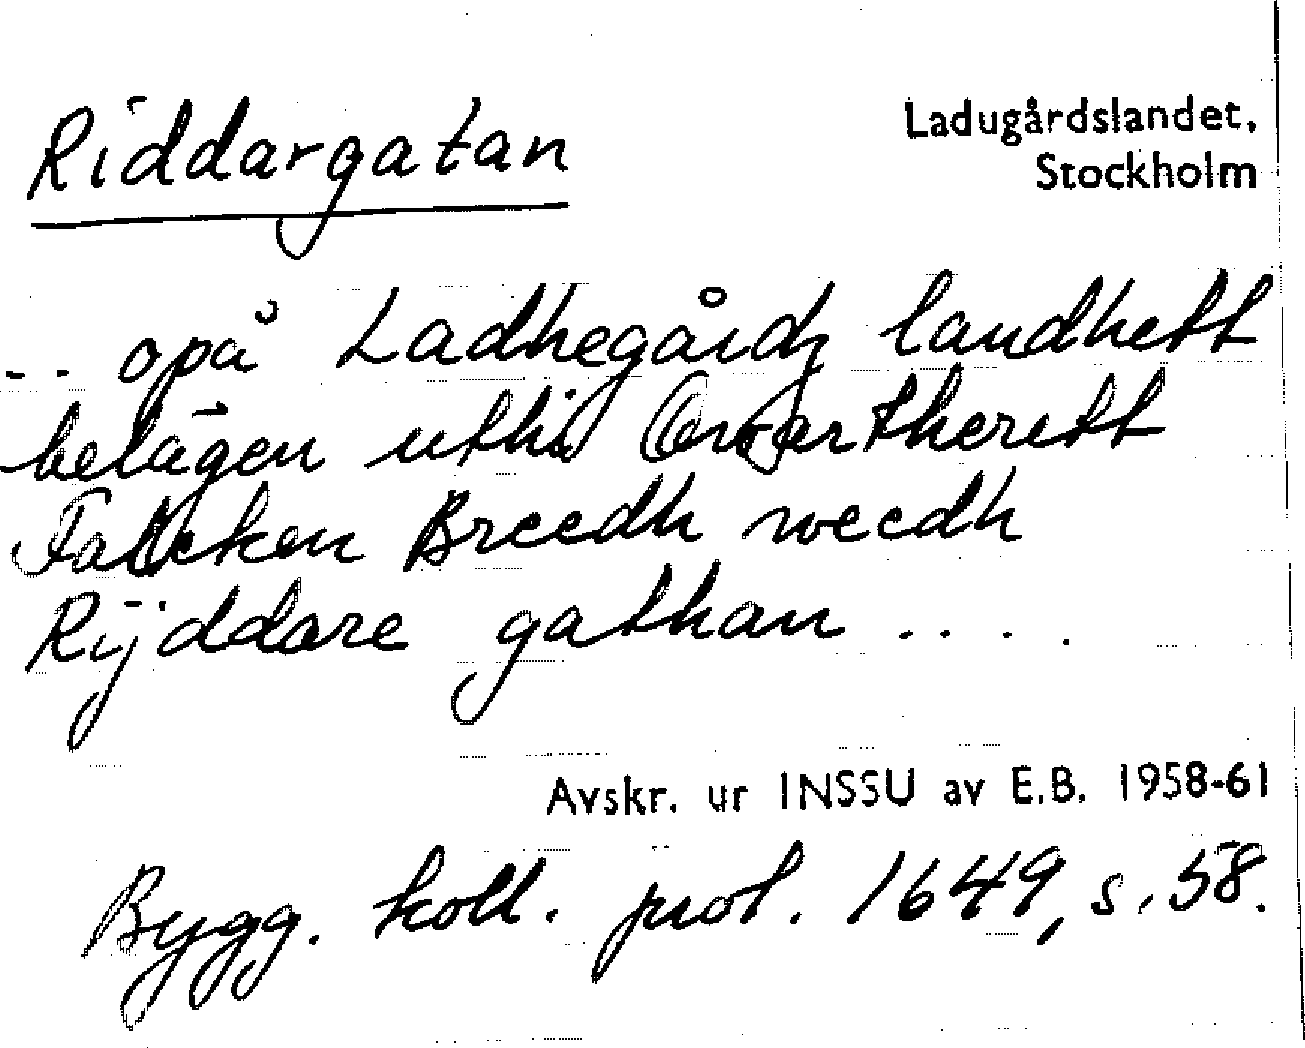 Riddargatan
Ladugårdslandet,
Stockholm
.. opå Ladhegårdz landhett
belägen uthi Qvartherett
Falcken Breedh weedh
Rijddare gathan ....
Avskr. ur INSSU av E.B. 1958-61
Bygg. koll. prot. 1649, s. 58.